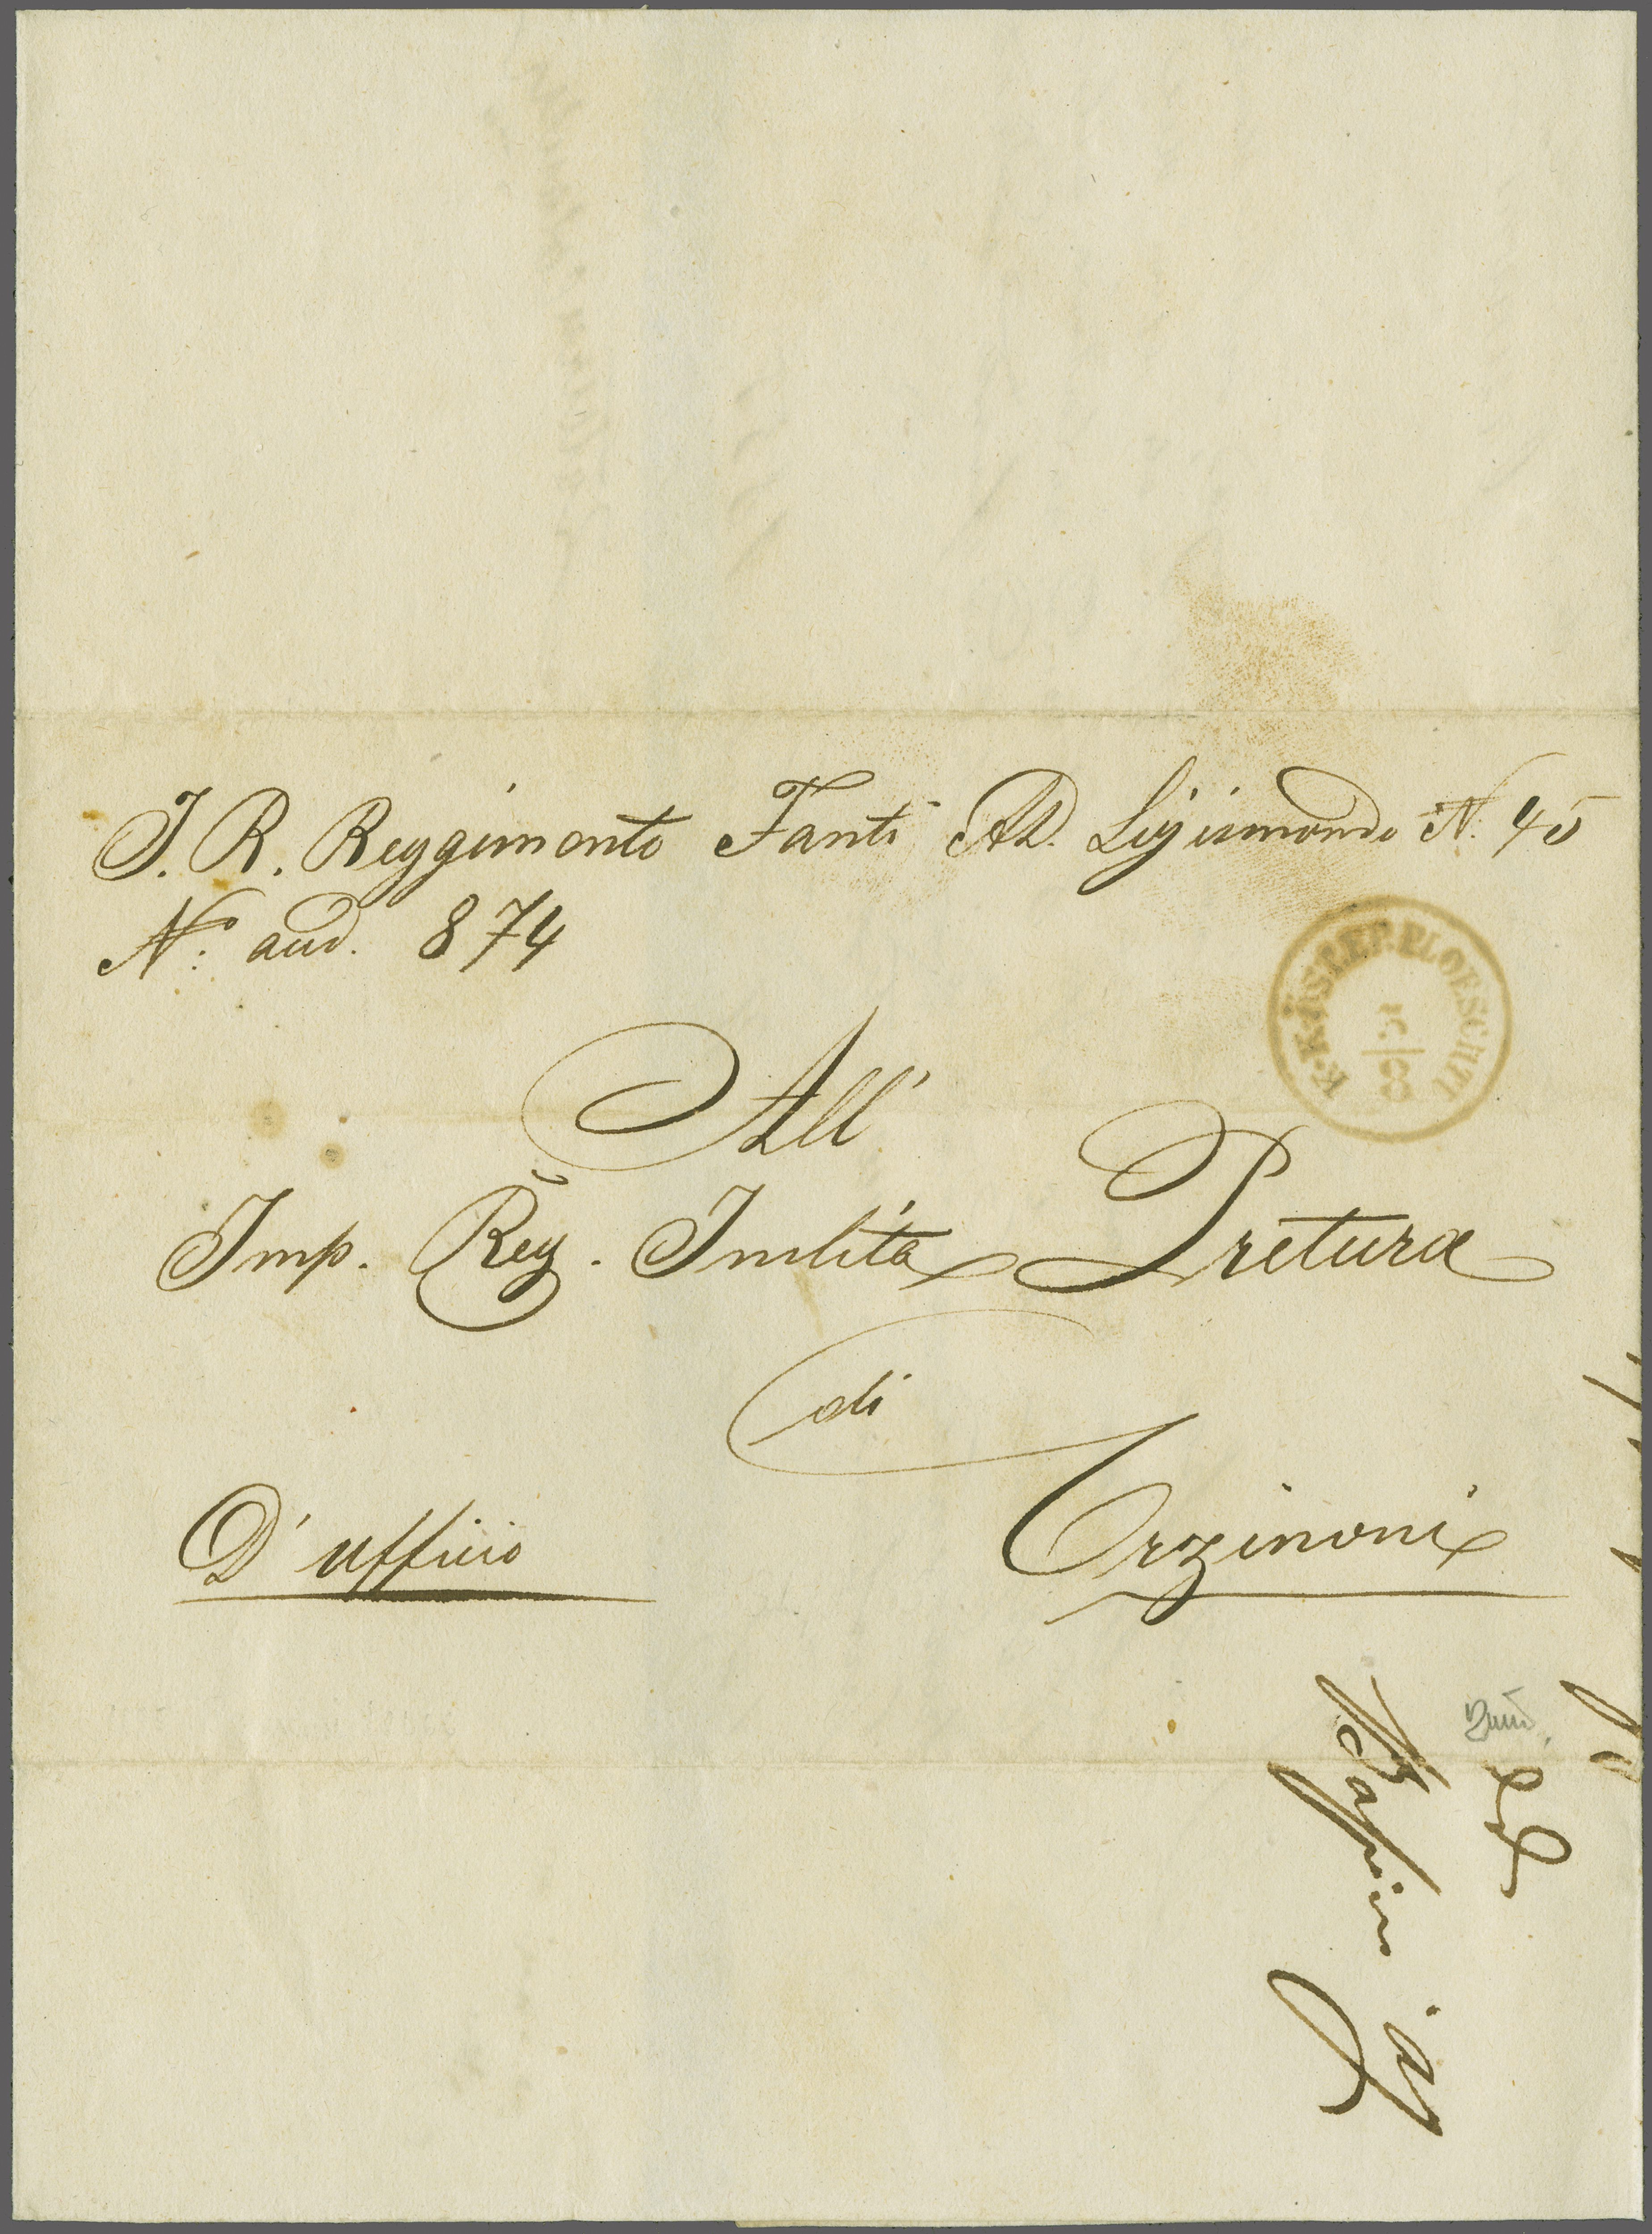 I. R. Reggimento Fanti AD. Sigismondo N. 45
N.º aud. 874
K. K. ÖST. F. P. PLOESCHTI
8/5
All'
Imp. Reg. Inclita Pretura
di
Orzinovi
D'ufficio